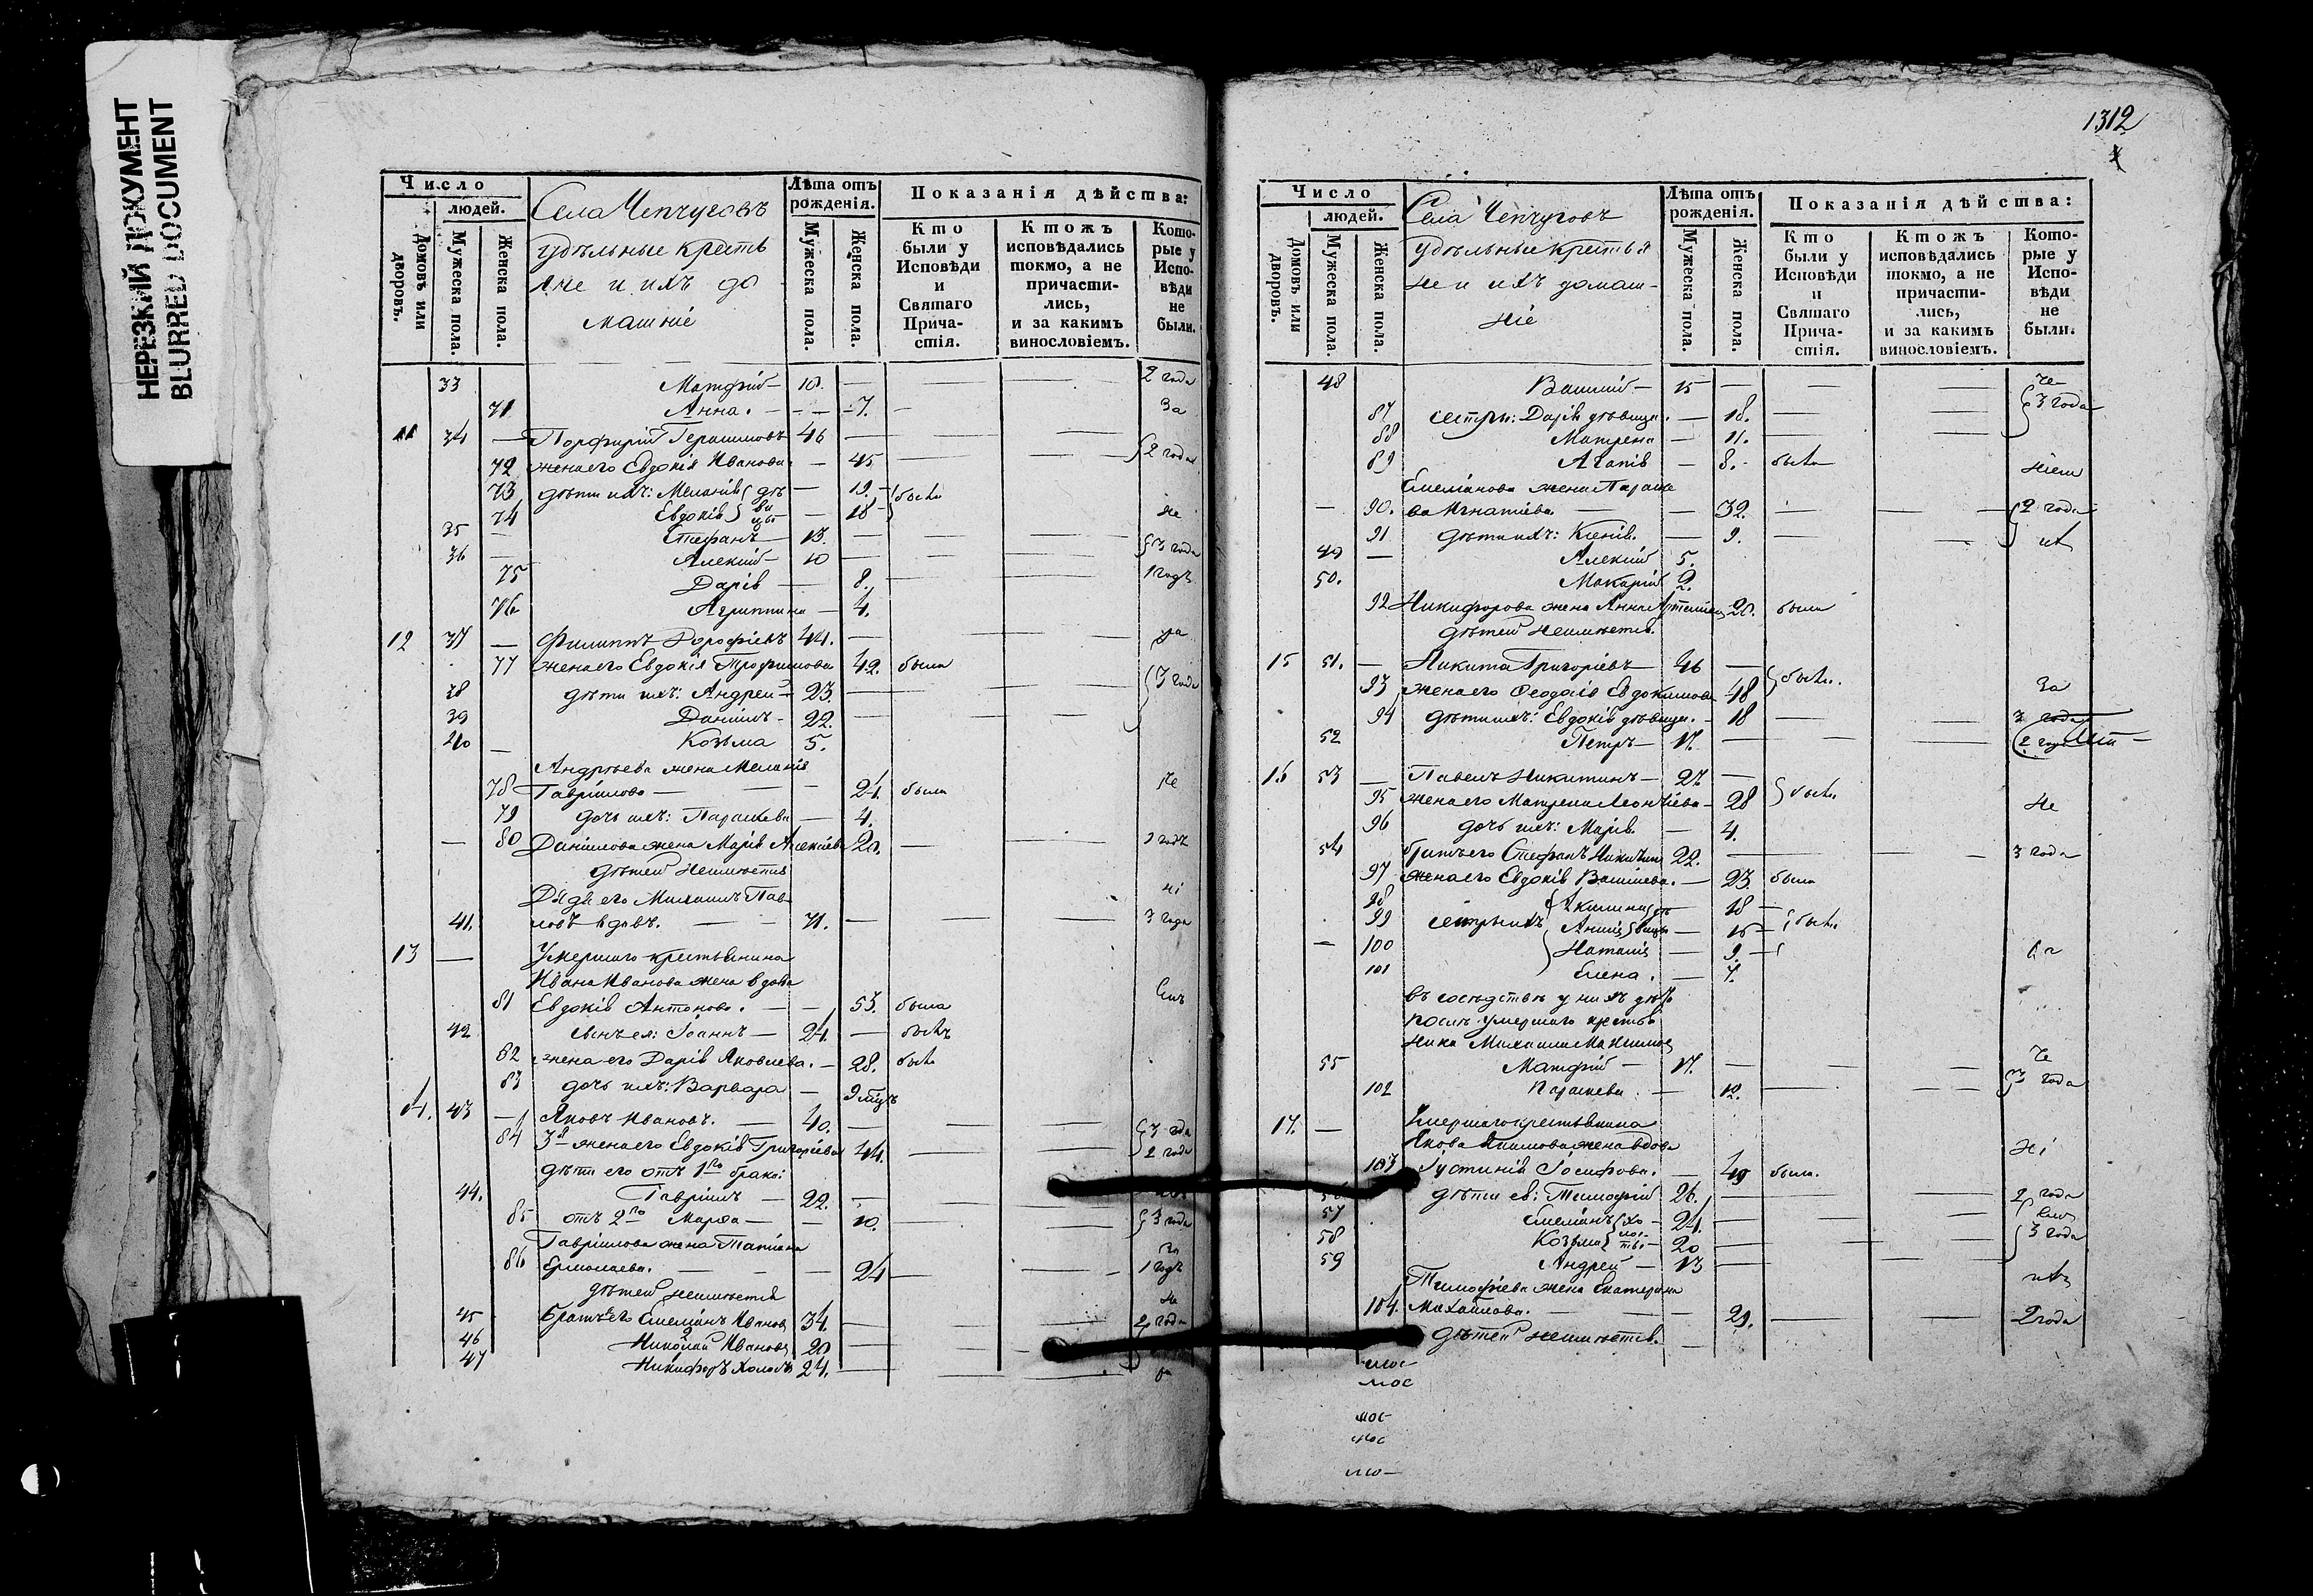 НЕРЕЗКИЙ ДОКУМЕНТ
BLURRED DOCUMENT
Число
людей.
Домовъ или дворовъ.
Мужеска пола.
Женска пола.
Села Чепчуговъ
удѣльные крестъ
яне и ихъ до
машніе
Лѣта отъ рожденія.
Мужеска пола.
Женска пола.
Показанія дѣйства:
Кто были у Исповѣди и Святаго Причастія.
Ктожъ исповѣдались токмо, а не причастились, и за какимъ винословіемъ.
Которые у Исповѣди не были.
33 Матфій 10. 2 года
71 Анна. 7. За
11 34 Порфирій Герасимовъ 46
72 жена его Евдокія Иванова 45 2 года
73 дѣти ихъ: Меланія дѣ 19 были
74 Евдокія вицы 18 не
35 Стефанъ 13.
36 Алексій 10 3 года
75 Дарія 8. 1 годъ
76 Агриппина 4.
12 37 Филиппъ Дорофіевъ 44.
77 жена его Евдокія Трофимова 42. была
38 дѣти ихъ: Андрей 23. 3 года
39 Даніилъ 22.
40 Козьма 5.
Андреева жена Меланія
78 Гавріилова 24. была Не
79 дочь ихъ: Параскева 4.
80 Даніилова жена Марія Алексіева 20. 1 годъ
дѣтей неимѣетъ
Дядя его Михаилъ Пав
41. ловъ вдовъ. 71. 3 года
13 Умершаго крестьянина
Ивана Иванова жена вдова
81 Евдокія Антонова. 53. была
42 сынъ ея: Іоаннъ 24. былъ
82 жена его Дарія Яковлева. 28. была
83 дочь ихъ: Варвара 9 мѣцъ
14. 43 Яковъ Ивановъ. 40. 3 года
84 3я жена его Евдокія Григоріева 44. 2 года
дѣти его отъ 1го брака:
44. Гавріилъ 22.
85 отъ 2го Марѳа 10. 3 года
Гавріилова жена Татіана
86 Ермолаева. 24 1 годъ
дѣтей неимѣетъ
45 Братъ его Емеліанъ Ивановъ 34. 2 года
46 Николай Ивановъ 20
47 Никифоръ Холостъ 24.
1312
Число
людей.
Домовъ или дворовъ.
Мужеска пола.
Женска пола.
Села Чепчуговъ
удѣльные крестья
не и ихъ домаш-
ніе
Лѣта отъ рожденія.
Мужеска пола.
Женска пола.
Показанія дѣйства:
Кто были у Исповѣди и Святаго Причастія.
Ктожъ исповѣдались токмо, а не причастились, и за какимъ винословіемъ.
Которые у Исповѣди не были.
48 Василій 15
87 сестры: Дарія дѣвица. 18. 3 года
88 Матрена 11.
89 Агапія 8. была
Емеліанова жена Параске
90. ва Игнатіева 32. 2 года
91 дѣти ихъ: Ксенія. 9.
49 Алексій 5.
50. Макарій 2.
92 Никифорова жена Анна 20. была
дѣтей неимѣетъ.
15 51. Никита Григоріевъ 46 были.
93 жена его Ѳеодосія Евдокимова 48 За
94 дѣти ихъ: Евдокія дѣвица. 18 3 года
52 Петръ 17. 2 года
16 53 Павелъ Никитинъ 27. были
95 жена его Матрена Леонтіева 28 Не
96 дочь ихъ: Марія. 4.
54 братъ его Стефанъ Никитинъ 22. 3 года
97 жена его Евдокія Васильева. 23. была
98 Акилина дѣ 18
99 сестры ихъ Анна вицы 15 были
100 Наталія 9.
101 Елена. 7.
въ сосѣдствѣ у нихъ дѣти
послѣ умершаго крестья
нина Михаила Максимова
55 Матфій 17. 3 года
102 Параскева 12.
17. Умершаго крестьянина
Якова Акимова жена вдова
103 Іустинія Іосифова. 49 была.
56 дѣти ея: Тимофій 26. 2 года
57 Емеліанъ хо 24.
58 Козьма лос-тые 20 3 года
59 Андрей 13
Тимофіева жена Екатерина
104. Михайлова. 29. 2 года
дѣтей неимѣетъ.